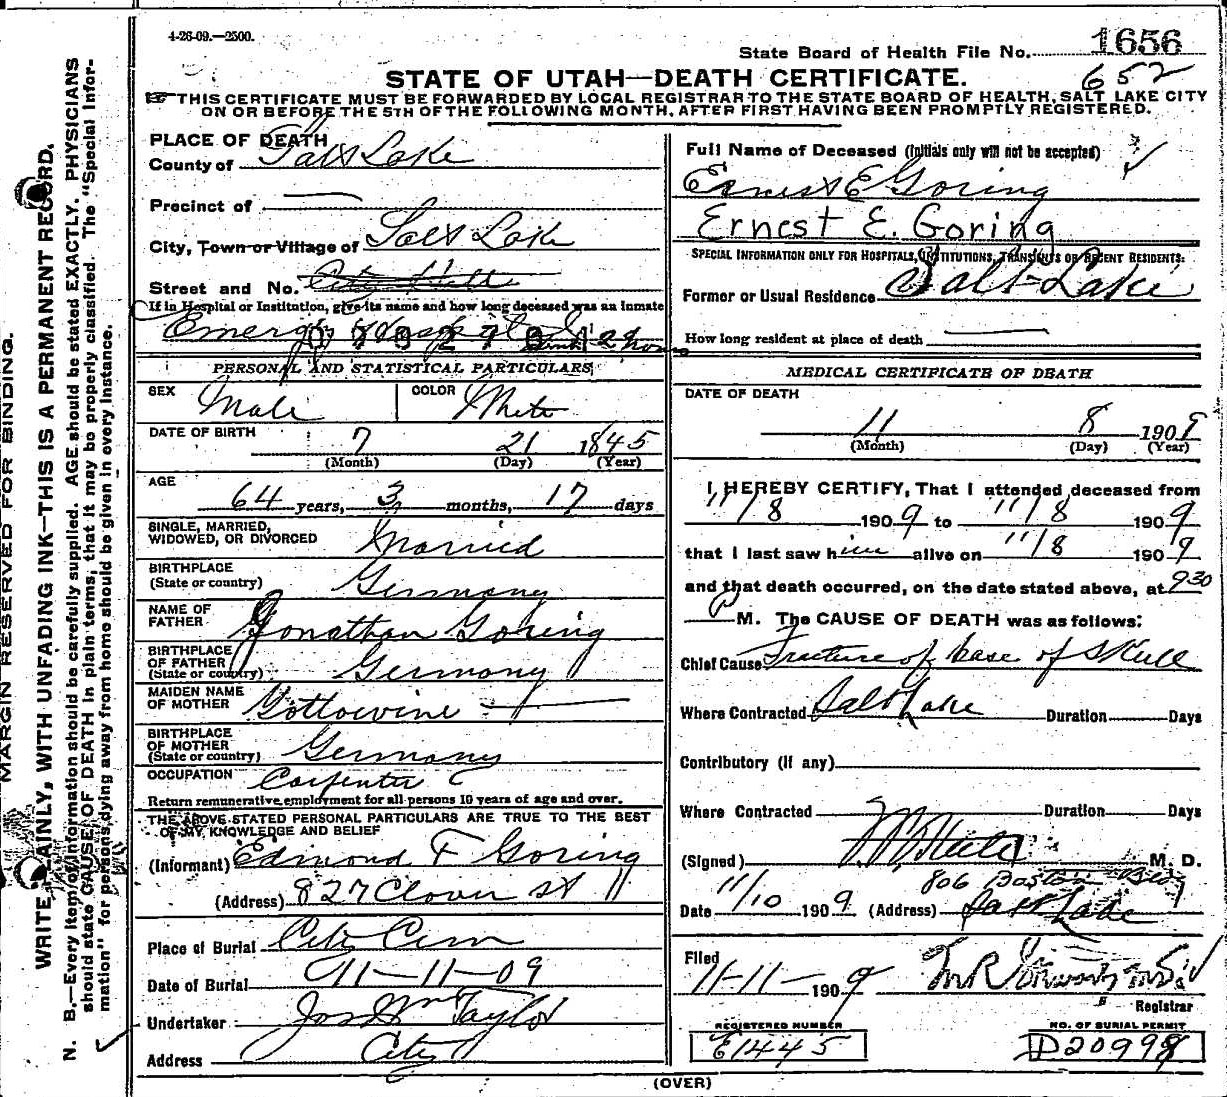 4-26-09.—2500.
State Board of Health File No. 1656
652
STATE OF UTAH—DEATH CERTIFICATE.
THIS CERTIFICATE MUST BE FORWARDED BY LOCAL REGISTRAR TO THE STATE BOARD OF HEALTH, SALT LAKE CITY
ON OR BEFORE THE 5TH OF THE FOLLOWING MONTH, AFTER FIRST HAVING BEEN PROMPTLY REGISTERED.
MARGIN RESERVED FOR BINDING.
WRITE PLAINLY, WITH UNFADING INK—THIS IS A PERMANENT RECORD.
N. B.—Every item of information should be carefully supplied. AGE should be stated EXACTLY. PHYSICIANS
should state CAUSE OF DEATH in plain terms, that it may be properly classified. The "Special Infor-
mation" for persons dying away from home should be given in every instance.
PLACE OF DEATH
County of Salt Lake
Precinct of —
City, Town or Village of Salt Lake
Street and No.
If in Hospital or Institution, give its name and how long deceased was an inmate
Emergy Hospital 2 hours
PERSONAL AND STATISTICAL PARTICULARS
SEX Male COLOR White
DATE OF BIRTH 7 21 1845
(Month) (Day) (Year)
AGE 64 years, 3 months, 17 days
SINGLE, MARRIED,
WIDOWED, OR DIVORCED Married
BIRTHPLACE
(State or country) Germany
NAME OF
FATHER Jonathan Goring
BIRTHPLACE
OF FATHER
(State or country) Germany
MAIDEN NAME
OF MOTHER Gottowine —
BIRTHPLACE
OF MOTHER
(State or country) Germany
OCCUPATION Carpenter
Return remunerative employment for all persons 10 years of age and over.
THE ABOVE STATED PERSONAL PARTICULARS ARE TRUE TO THE BEST
OF MY KNOWLEDGE AND BELIEF
(Informant) Edmond F Goring
(Address) 827 Clover St
Place of Burial City Cem
Date of Burial 11-11-09
Undertaker Jos Wm Taylor
Address City
Full Name of Deceased (Initials only will not be accepted)
Ernest E Goring
Ernest E. Goring
SPECIAL INFORMATION ONLY FOR HOSPITALS, INSTITUTIONS, TRANSIENTS OR RECENT RESIDENTS:
Former or Usual Residence Salt Lake
How long resident at place of death —
MEDICAL CERTIFICATE OF DEATH
DATE OF DEATH
11 8 1909
(Month) (Day) (Year)
I HEREBY CERTIFY, That I attended deceased from
11/8 1909 to 11/8 1909
that I last saw him alive on 11/8 1909
and that death occurred, on the date stated above, at 930
P M. The CAUSE OF DEATH was as follows:
Chief Cause Fracture of base of skull
Where Contracted Salt Lake Duration Days
Contributory (if any)
Where Contracted Duration Days
(Signed) M. D.
806 Boston Bldg
Date 11/10 1909 (Address) Salt Lake
Filed
11-11-1909
Registrar
REGISTERED NUMBER
E1445
NO. OF BURIAL PERMIT
D20998
(OVER)